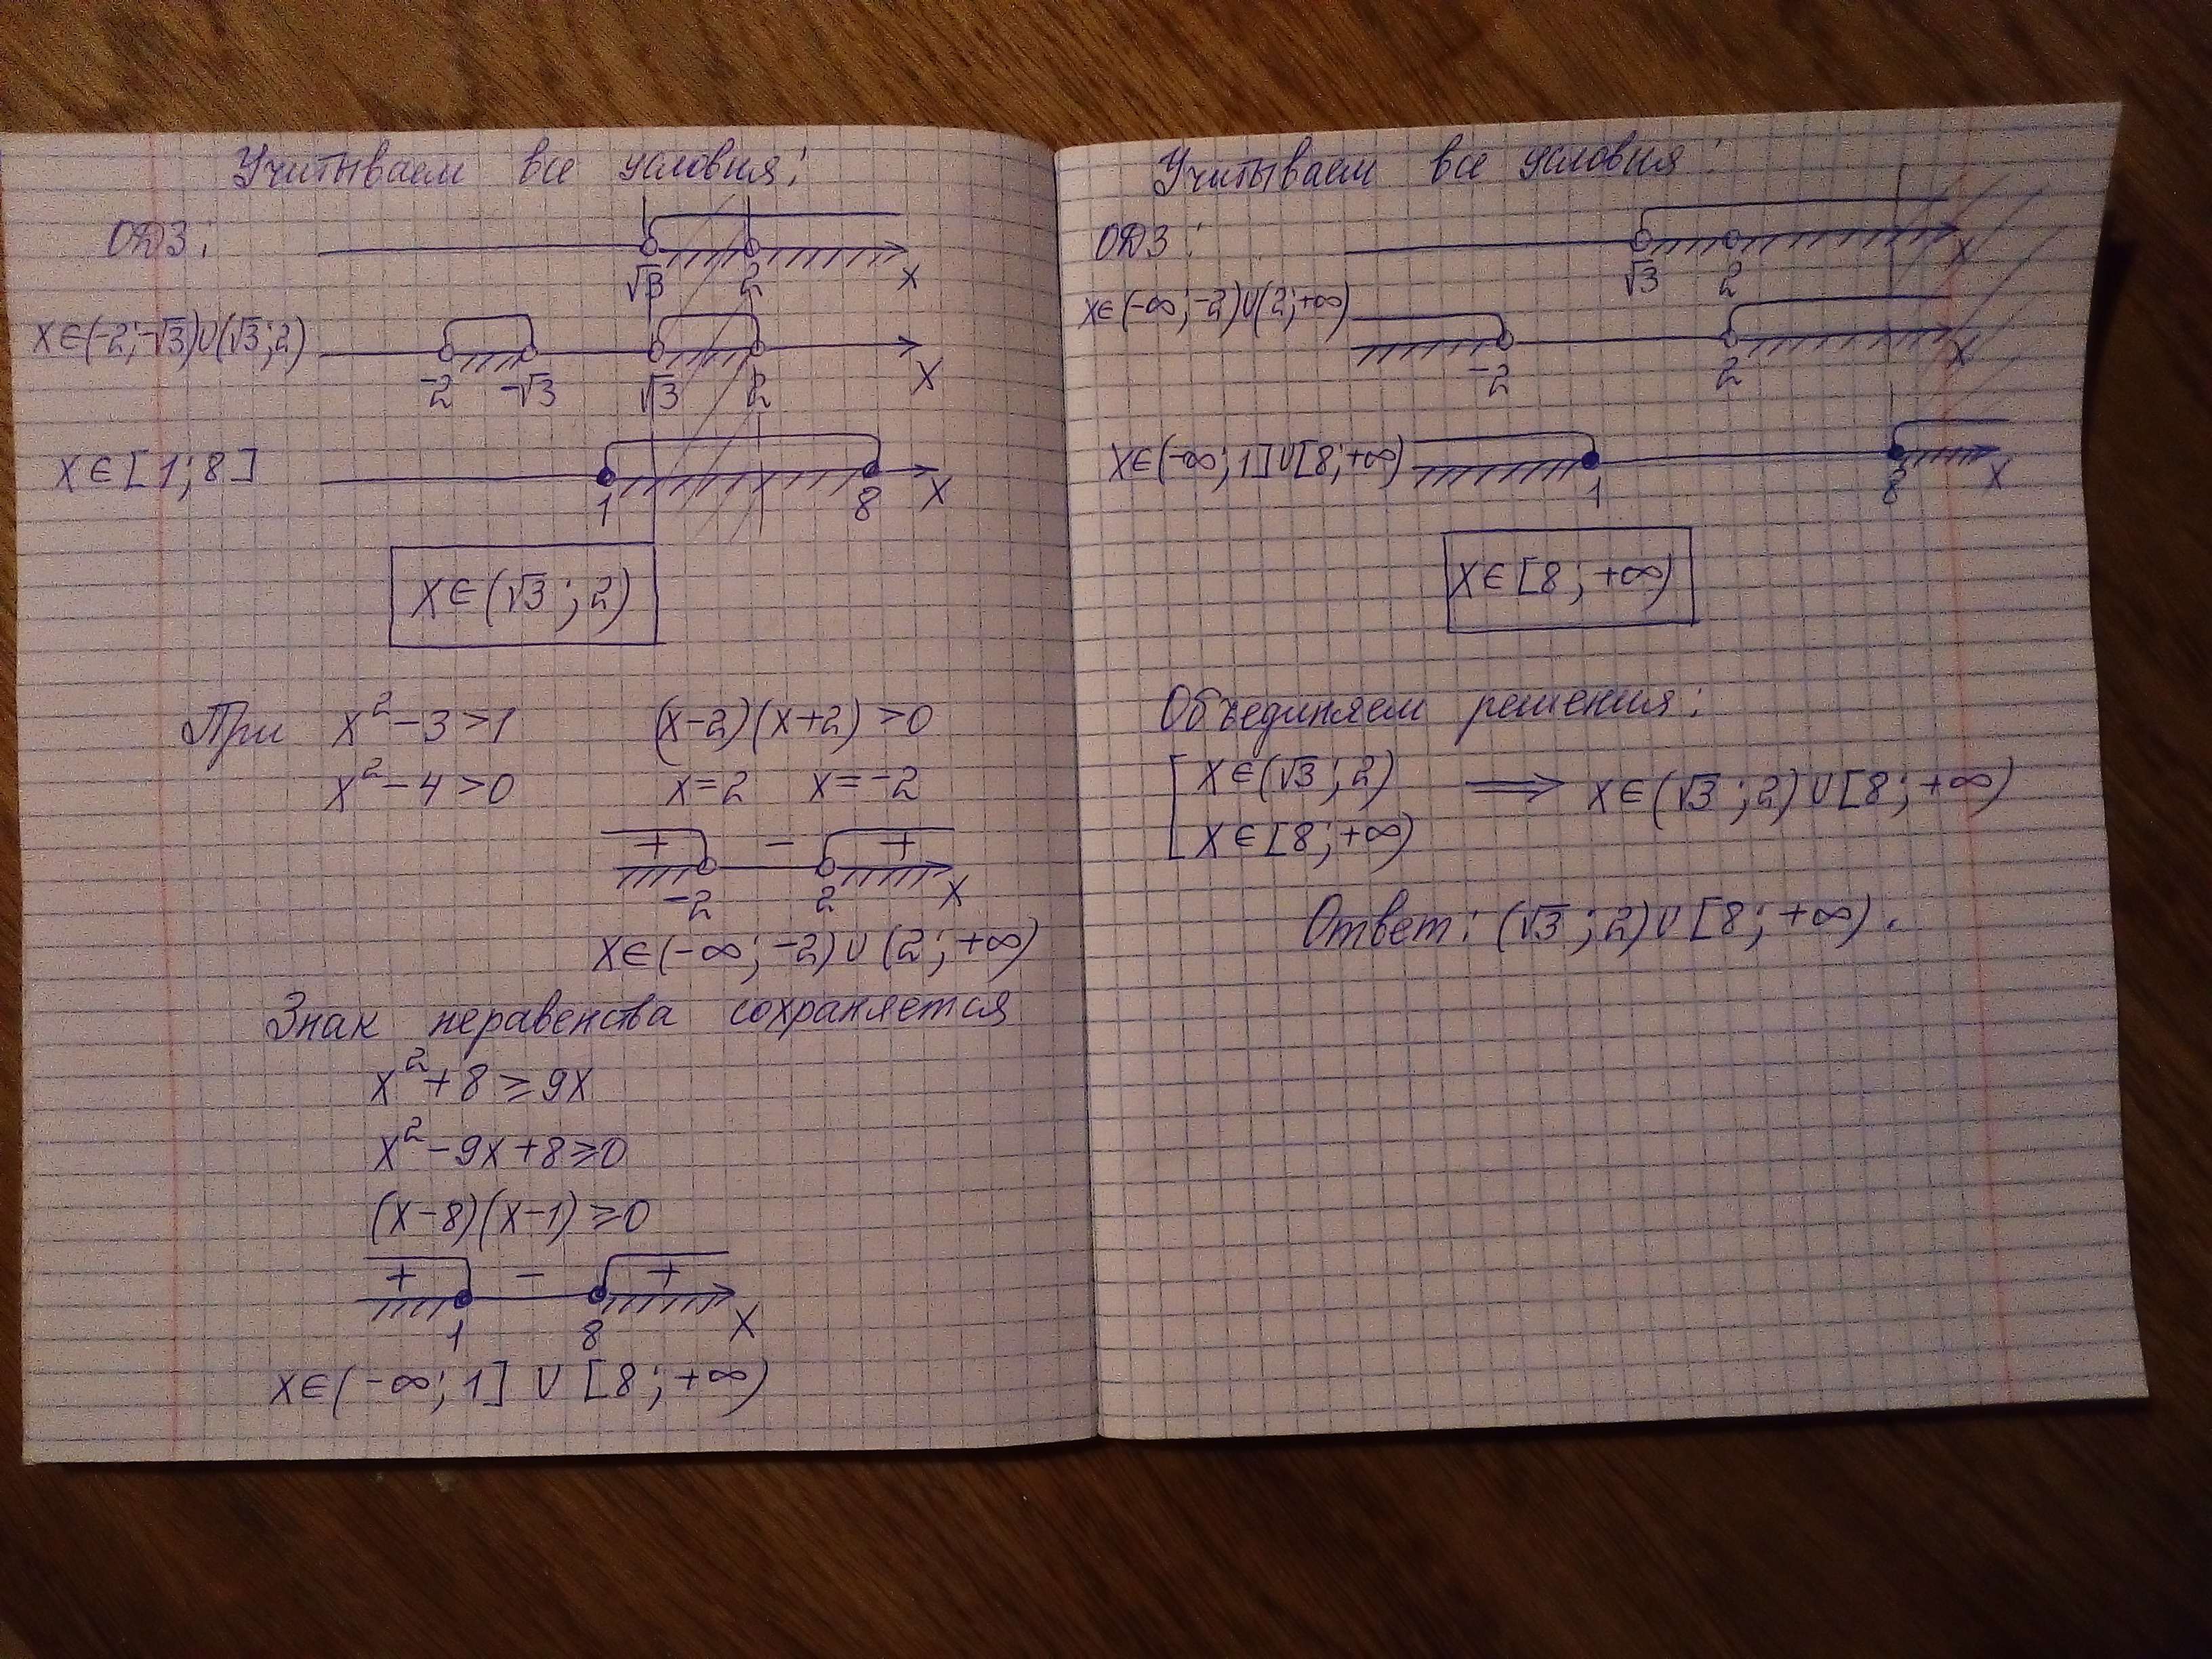 Учитываем все условия:
ОДЗ:
√3 2 x
x∈(-2;-√3)∪(√3;2)
-2 -√3 √3 2 x
x∈[1;8]
1 8 x
x∈(√3;2)
При x²-3>1 (x-2)(x+2)>0
x²-4>0 x=2 x=-2
+ - +
-2 2 x
x∈(-∞;-2)∪(2;+∞)
Знак неравенства сохраняется
x²+8≥9x
x²-9x+8≥0
(x-8)(x-1)≥0
+ - +
1 8 x
x∈(-∞;1]∪[8;+∞)
Учитываем все условия:
ОДЗ:
√3 2 x
x∈(-∞;-2)∪(2;+∞)
-2 2 x
x∈(-∞;1]∪[8;+∞)
1 8 x
x∈[8;+∞)
Объединяем решения:
[ x∈(√3;2) ⟹ x∈(√3;2)∪[8;+∞)
x∈[8;+∞)
Ответ: (√3;2)∪[8;+∞).